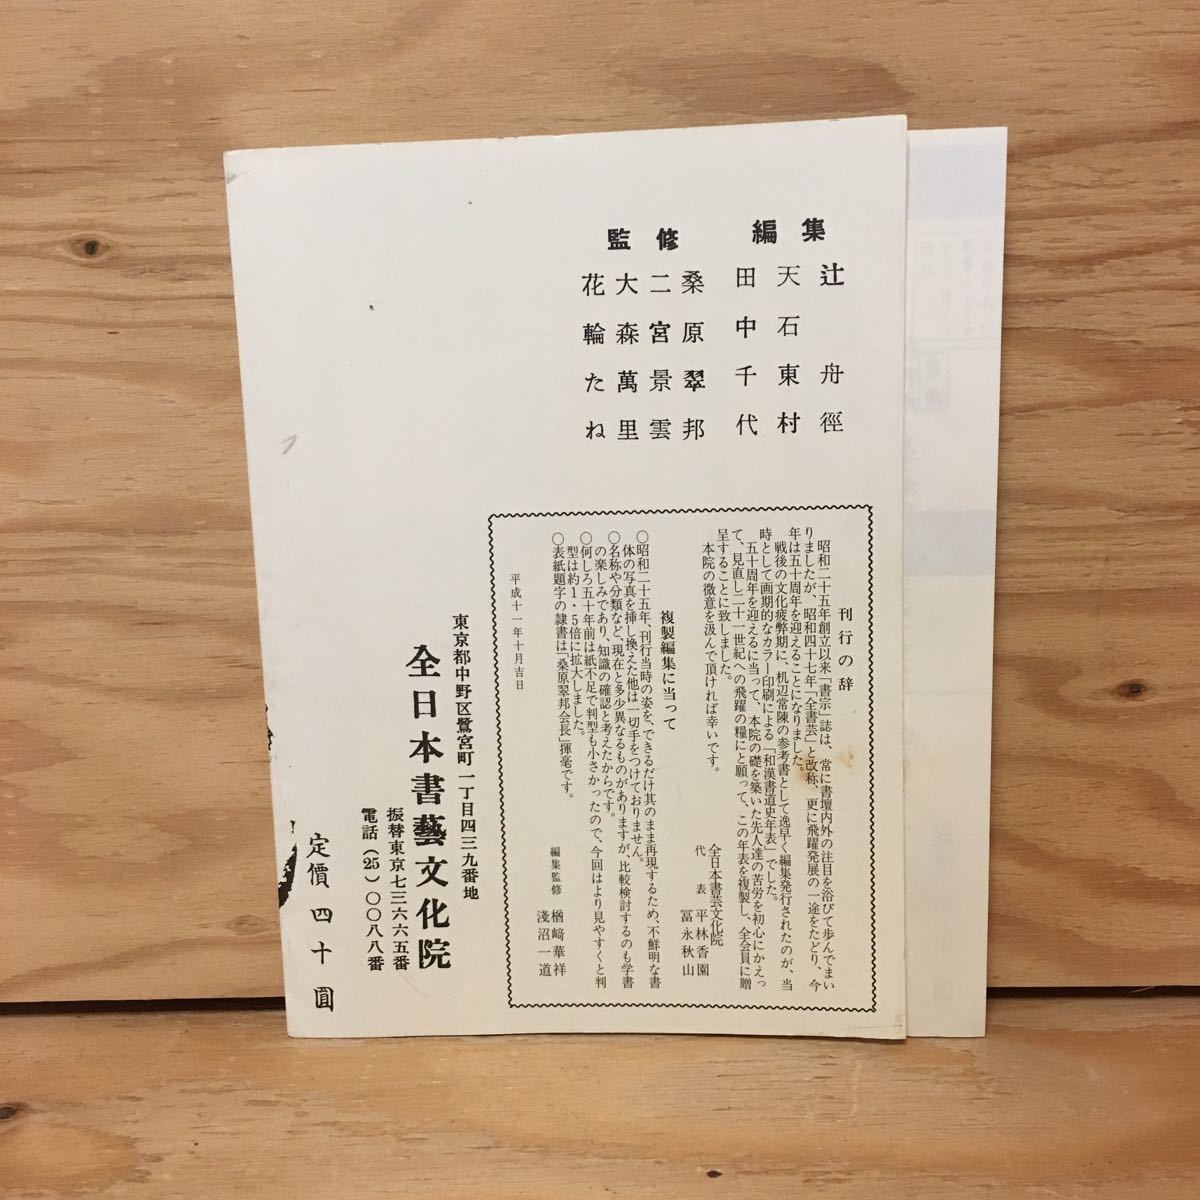 編集
辻 舟徑
天石東村
田中千代
監修
桑原翠邦
二宮景雲
大森萬里
花輪たね
刊行の辞
昭和二十五年創立以来「書宗」誌は、常に書壇内外の注目を浴びて歩んでまい
りましたが、昭和四十七年「全書芸」と改称、更に飛躍発展の一途をたどり、今
年は五十周年を迎えることになりました。
戦後の文化疲弊期に、机辺常陳の参考書として逸早く編集発行されたのが、当
時として画期的なカラー印刷による「和漢書道史年表」でした。
五十周年を迎えるに当って、本院の礎を築いた先人達の苦労を初心にかえっ
て、見直し二十一世紀への飛躍の糧にと願って、この年表を複製し、全会員に贈
呈することに致しました。
本院の微意を汲んで頂ければ幸いです。
全日本書芸文化院
代表 平林香園
冨永秋山
複製編集に当って
○昭和二十五年、刊行当時の姿を、できるだけ其のまま再現するため、不鮮明な書
体の写真を挿し換えた他は一切手をつけておりません。
○名称や分類など、現在と多少異なるものがありますが、比較検討するのも学書
の楽しみであり、知識の確認と考えたからです。
○何しろ五十年前は紙不足で判型も小さかったので、今回はより見やすくと判
型は約1・5倍に拡大しました。
○表紙題字の隷書は「桑原翠邦会長」揮毫です。
編集監修 楢﨑華祥
淺沼一道
平成十一年十月吉日
東京都中野区鷺宮町一丁目四三九番地
全日本書藝文化院
振替東京七三六六五番
電話(25)〇〇八八番
定價四十圓